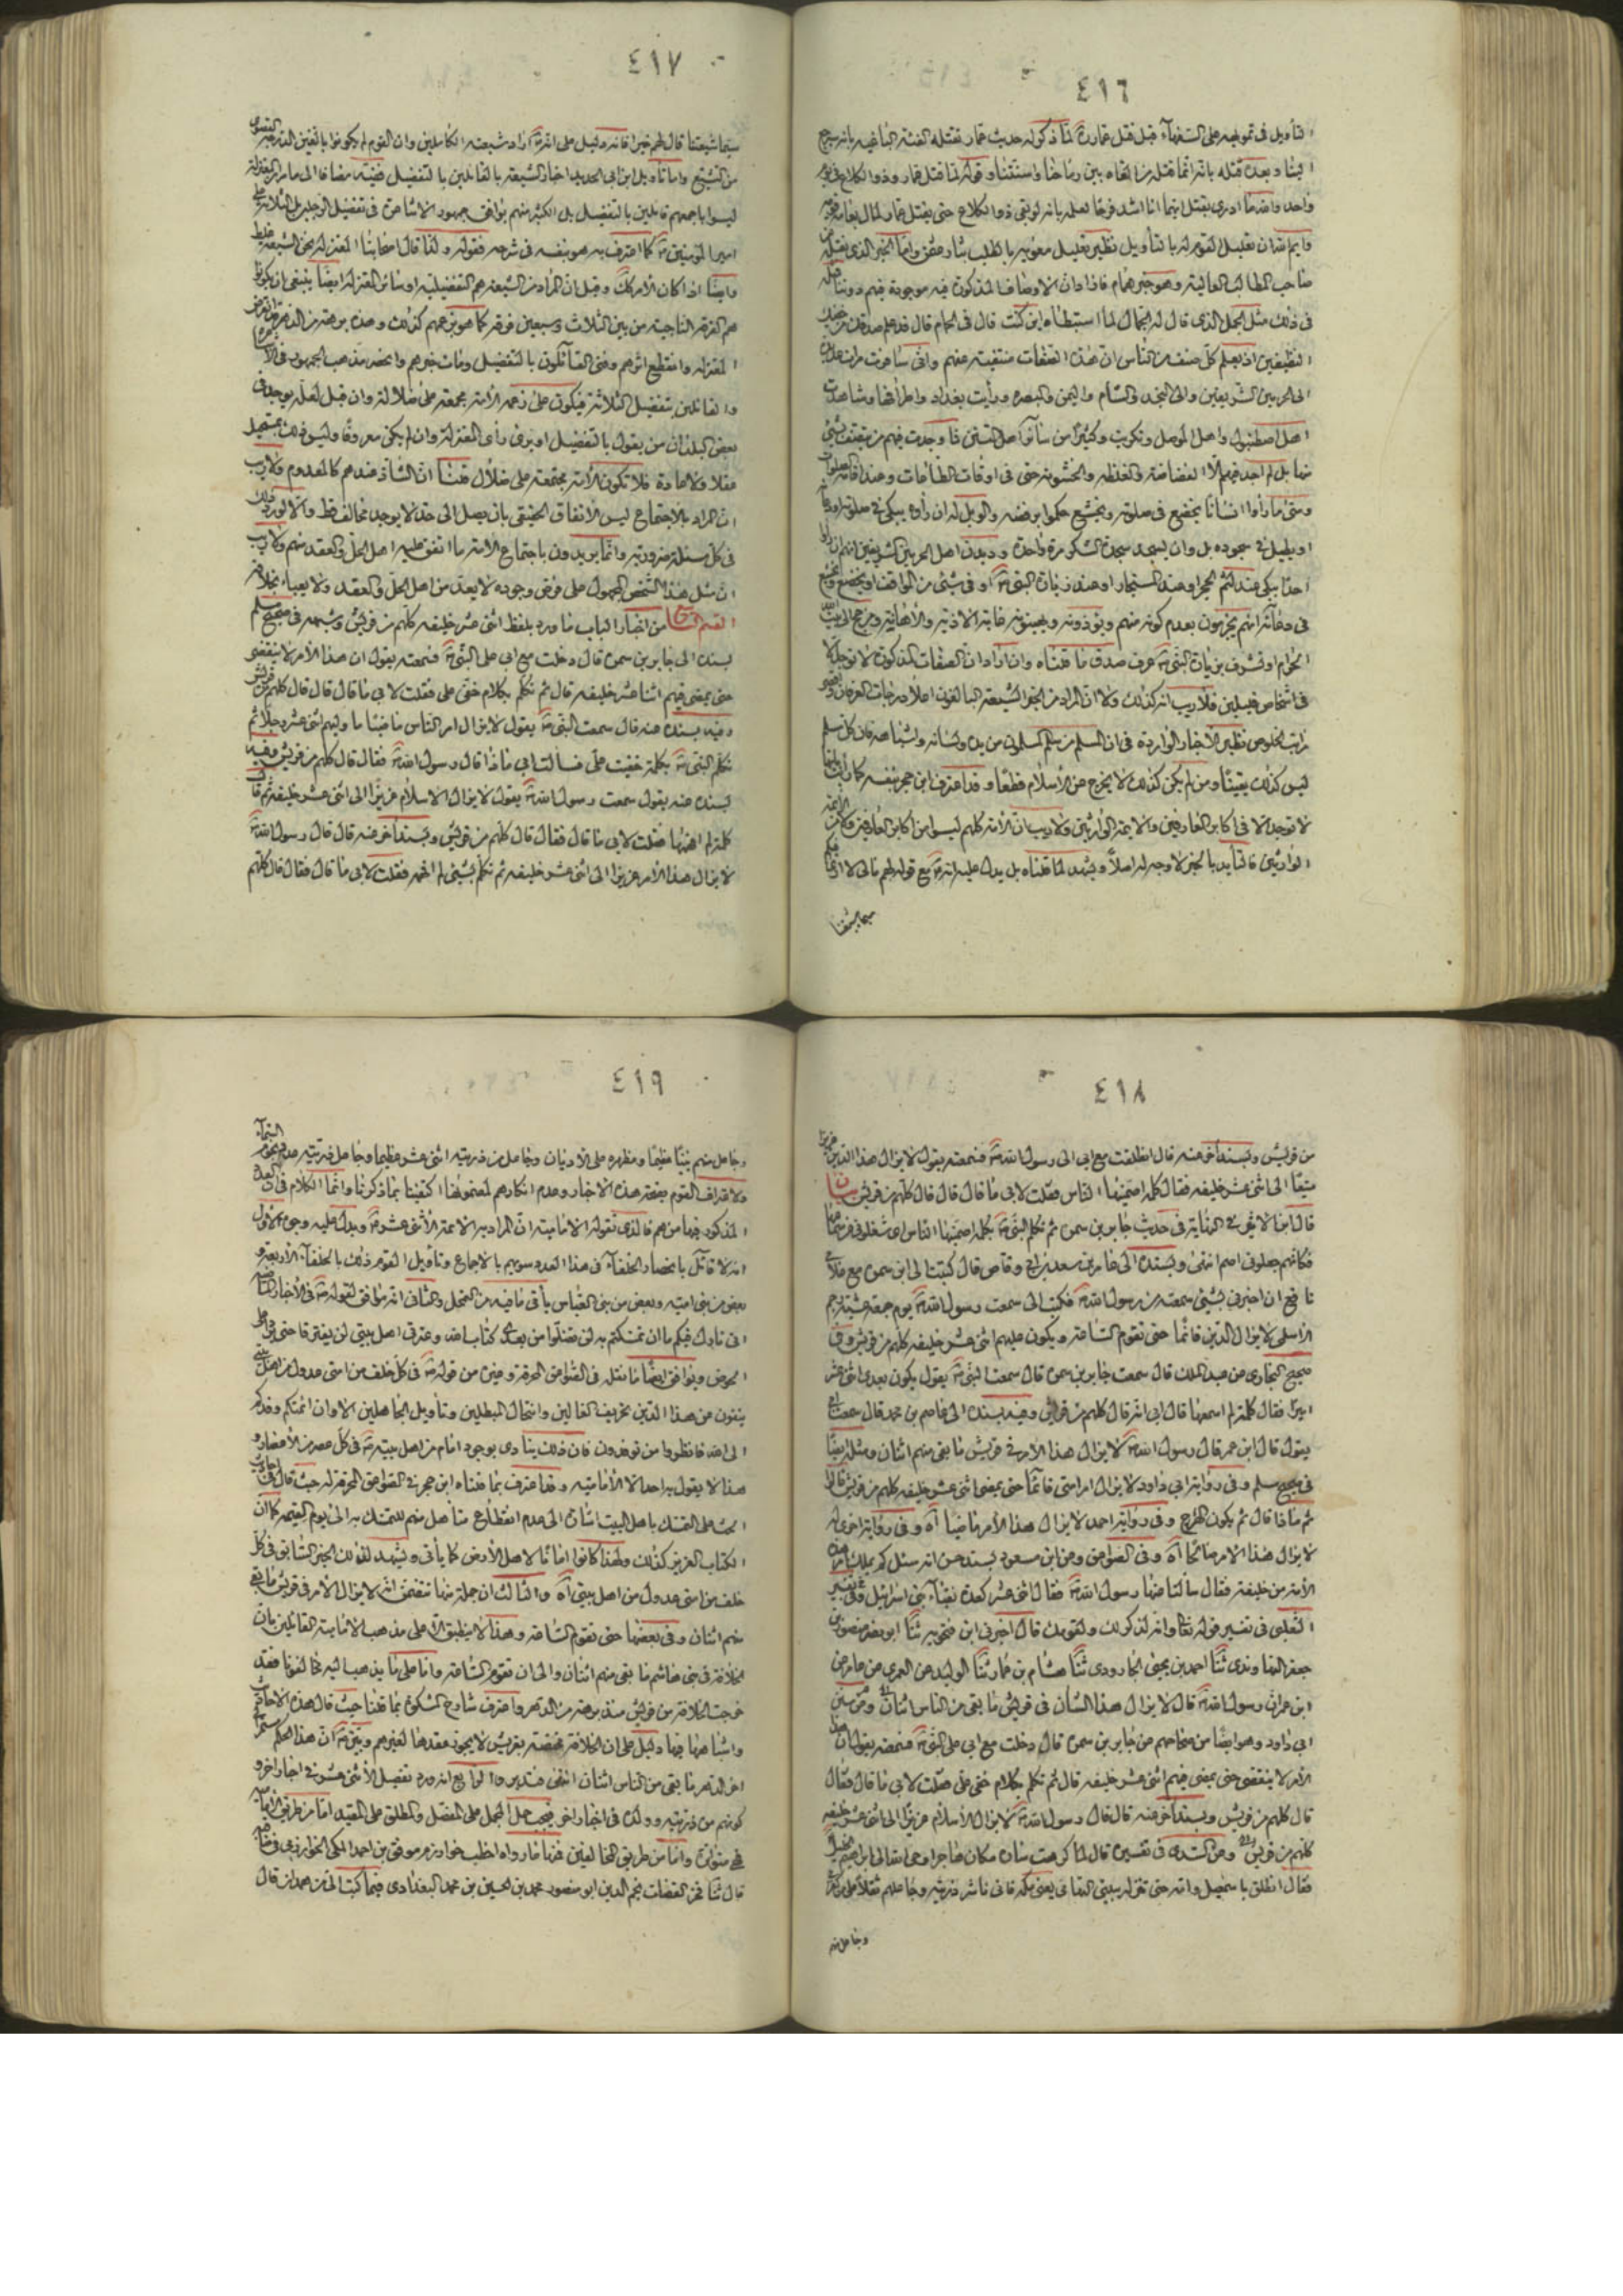 ٤١٦
التأويل في تمويهه على السفهاء قبل قتل عمار رة لما ذكر له حديث عمار تقتله الفئة الباغية بانه سيرجع
الينا وبعد قتله بانه انما قتله من القاه بين رماحنا واسنتنا و قوله لما قتل عمار وذو الكلاع في يوم
واحد والله ما ادري بقتل ايهما انا اشد فرحا لعله بانه لو بقي ذو الكلاع حتى يقتل عمار لمال بعامة قومه
وايم الله ان تعليل القوم له بالتأويل نظير تعليل معوية بالطلب بثار عثمن واما الخبر الذي نقله عن
صاحب المطالب العالية وهو خبر همام فاذا دان الاوصاف المذكورة فيه موجودة فيهم دوننا
في ذلك مثل الجمل الذي قال له الجمال لما استبطاه اين كنت قال في الحمام قال قد علم صدقك من
النظيفين اذ يعلم كل صنف من الناس ان هذه الصفات منتفية عنهم واني سافرت مرات عديدة
الى الحرمين الشريفين والى النجد والشام واليمن والبصرة ورأيت بغداد واطرافها وشاهدت
اهل اصطنبول واهل الموصل وتكريت وكثيرا من سائر اهل التسنن فما وجدت فيهم من يتصف بشئ
منها بل لم اجد فيهم الا الفضاضة والغلظة والخشونة حتى في اوقات الطاعات وعند اقامة الصلوات
ومتى ما رأوا انسانا يخضع في صلوته ويخشع حكموا برفضه والويل له ان رأوه يبكي في صلوته او دعائه
او يطيل في سجوده بل وان يسجد سجدة الشكر مرة واحدة وديدن اهل الحرمين الشريفين انهم ان رأوا
احدا يبكي عند لثم الحجر او عند المستجار او عند زيارة النبي ص او في شئ من المواقف او يخضع ويخشع
في دعائه انهم يجزمون بعدم كونه منهم ويؤذونه ويهينونه غاية الاذية والاهانة ومن حج الى بيت الله
الحرام او تشرف بزيارة النبي ص عرف صدق ما قلناه وان اراد ان الصفات المذكورة لا توجد الا
في اشخاص قليلين فلا ريب انه كذلك ولا ان المراد من الخبر الشيعة البالغون اعلا درجات العرفان واقصى
مراتب الخلوص نظير الاخبار الواردة في ان المسلم من سلم المسلمون من يده ولسانه واشباهه فان كل مسلم
ليس كذلك يقينا ومن لم يكن كذلك لا يخرج عن الاسلام قطعا وقد اعترف ابن حجر بنفسه كما رأيت بانها
لا توجد الا في اكابر العارفين والائمة الوارثين ولا ريب ان الامة كلهم ليسوا من اكابر العارفين ولا من الائمة
الوارثين فالتأييد بالخبر لا وجه له اصلا ويشهد لما قلناه بل يدل عليه انه ص مع قوله لهم مالي لا ارى فيكم
سيما شيعتنا
٤١٧
سيما شيعتنا قال لهم خيرا فانه دليل على انه ص اراد شيعته الكاملين وان القوم لم يكونوا بالغين الدرجة القصوى
من التشيع واما تأويل ابن ابي الحديد اخبار الشيعة بالقائلين بالتفضيل ففيه مضافا الى ما مر ان المعتزلة
ليسوا باجمعهم قائلين بالتفضيل بل اكثرهم يوافق جمهور الاشاعرة في تفضيل الرجلين بل الثلاثة على
امير المؤمنين ع كما اعترف به هو بنفسه في شرحه فقوله ولقد قال اصحابنا المعتزلة نحن الشيعة غلط
وايضا اذا كان الامر كك وقيل ان المراد من الشيعة هم التفضيلية او سائر المعتزلة ايضا ينبغي ان يكونوا
هم الفرقة الناجية من بين الثلاث وسبعين فرقة كما هو زعمهم كذلك وهذه برهة من الدهر قد انقرض
المعتزلة وانقطع اثرهم وفنى القائلون بالتفضيل ومات خبرهم وانحصر مذهب الجمهور في الاشاعرة
والقائلين بتفضيل الثلاثة فيكون على زعمه الامة مجمعة على ضلالة وان قيل لعله يوجد في
بعض البلدان من يقول بالتفضيل او يرى رأى المعتزلة وان لم يكن معروفا وليس ذلك بمستحيل
عقلا ولا عادة فلا تكون الامة مجتمعة على ضلال قلنا ان الشاذ عندهم كالمعدوم ولا ريب
ان المراد بالاجتماع ليس الاتفاق الحقيقي بان يصل الى حد لا يوجد مخالف قط والا لورد ذلك
في كل مسئلة ضرورية وانما يريدون باجتماع الامة ما اتفق عليه اهل الحل والعقد منهم ولا ريب
ان مثل هذا الشخص المجهول على فرض وجوده لا يعد من اهل الحل والعقد ولا يعبأ بخلافه
القسم من اخبار الباب ما ورد بلفظ اثني عشر خليفة كلهم من قريش وشبهه في صحيح مسلم
بسنده الى جابر بن سمرة قال دخلت مع ابي على النبي ص فسمعته يقول ان هذا الامر لا ينقضي
حتى يمضي فيهم اثنا عشر خليفة قال ثم تكلم بكلام خفي على فقلت لابي ما قال قال قال كلهم من قريش
وفيه بسنده عنه قال سمعت النبي ص يقول لا يزال امر الناس ماضيا ما وليهم اثني عشر رجلا ثم
تكلم النبي ص بكلمة خفيت على فسالت ابي ماذا قال رسول الله ص فقال قال كلهم من قريش وفيه
بسنده عنه يقول سمعت رسول الله ص يقول لا يزال الاسلام عزيزا الى اثني عشر خليفة ثم قال
كلمة لم افهمها فقلت لابي ما قال فقال قال كلهم من قريش وبسند اخر عنه قال قال رسول الله ص
لا يزال هذا الامر عزيزا الى اثني عشر خليفة ثم تكلم بشئ لم افهمه فقلت لابي ما قال فقال قال كلهم
٤١٨
من قريش وبسند اخر عنه قال انطلقت مع ابي الى رسول الله ص فسمعته يقول لا يزال هذا الدين عزيزا
منيعا الى اثني عشر خليفة فقال كلمة اصمنيها الناس فقلت لابي ما قال قال قال كلهم من قريش
قال في حديث جابر بن سمرة ثم تكلم النبي ص بكلمة اصمنيها الناس اي شغلوني عن سماعها
فكانهم جعلوني اصم انتهى وبسنده الى عامر بن سعد بن ابي وقاص قال كتبت الى ابن سمرة مع غلامي
نافع ان اخبرني بشئ سمعته من رسول الله ص فكتب الى سمعت رسول الله ص يوم جمعة عشية رجم
الاسلمي لا يزال الدين قائما حتى تقوم الساعة ويكون عليهم اثنى عشر خليفة كلهم من قريش وفي
صحيح البخاري عن عبد الملك قال سمعت جابر بن سمرة قال سمعت النبي ص يقول يكون بعدي اثني عشر
اميرا فقال كلمة لم اسمعها قال ابي انه قال كلهم من قريش وفيه بسنده الى عاصم بن محمد قال سمعت ابي
يقول قال ابن عمر قال رسول الله ص لا يزال هذا الامر في قريش ما بقي منهم اثنان ومثله ايضا
في صحيح مسلم وفي رواية ابي داود لا يزال امر امتي قائما حتى يمضي اثني عشر خليفة كلهم من قريش قالوا
ثم ماذا قال ثم يكون الهرج وفي رواية احمد لا يزال هذا الامر ماضيا آه وفي رواية اخرى له
لا يزال هذا الامر صالحا آه وفي الصواعق وعن ابن مسعود بسند حسن انه سئل كم يملك هذه
الامة من خليفة فقال سألنا عنها رسول الله ص فقال اثني عشر كعدة نقباء بني اسرائيل وفي تفسير
الثعلبي في تفسير قوله تعا وانه لذكر لك ولقومك قال اخبرني ابن فنجويه ثنا ابو نصر منصور بن
جعفر النهاوندي ثنا احمد بن يحيى الجارودي ثنا هشام بن عمار ثنا الوليد عن العمري عن
ابن عمر ان رسول الله ص قال لا يزال هذا الشأن في قريش ما بقي من الناس اثنان وعن سنن
ابي داود وهو ايضا من صحاحهم عن جابر بن سمرة قال دخلت مع ابي على النبي ص فسمعته يقول ان هذا
الامر لا ينقضي حتى يمضي فيهم اثني عشر خليفة قال ثم تكلم بكلام خفي على فقلت لابي ما قال فقال
قال كلهم من قريش وبسند اخر عنه قال قال رسول الله ص لا يزال الاسلام عزيزا الى اثني عشر خليفة
كلهم من قريش وعن السدي في تفسيره قال لما كرهت سارة مكان هاجر اوحى الله تعالى الى ابراهيم الخليل
فقال انطلق باسمعيل وامه حتى تنزله بيتي التهامي يعني مكه فاني ناشر ذريته وجاعلهم ثقلا على من كفر
وجاعل منهم
٤١٩
وجاعل منهم نبيا عظيما ومظهره على الاديان وجاعل من ذريته اثنى عشر عظيما وجاعل ذريته عدد نجوم السماء
ولاعتراف القوم بصحة هذه الاخبار وعدم انكارهم لمضمونها اكتفينا بما ذكرنا وانما الكلام في العدد
المذكور فيها من هم فالذي تقوله الامامية ان المراد به الائمة الاثنى عشر ع ويدل عليه وجوه الاول
انه لا قائل بانحصار الخلفاء في هذا العدد سويهم بالاجماع وتأويل القوم ذلك بالخلفاء الاربعة و
بعض من بني امية وبعض من بني العباس يأتي ما فيه من التمحل والثاني انه موافق لقوله ص في الاخبار
اني تارك فيكم ما ان تمسكتم به لن تضلوا من بعدي كتاب الله وعترتي اهل بيتي لن يفترقا حتى يردا على
الحوض ويوافق ايضا ما نقله في الصواعق المحرقة وغيره من قوله ص في كل خلف من امتي عدول من اهل بيتي
ينفون عن هذا الدين تحريف الغالين وانتحال المبطلين وتأويل الجاهلين الا وان ائمتكم وفدكم
الى الله فانظروا من توفدون فان ذلك ينادي بوجود امام من اهل بيته ص في كل عصر من الاعصار و
هذا لا يقول به احد الا الامامية وقد اعترف بما قلناه ابن حجر في الصواعق المحرقة حيث قال وفي احاديث
الحث على التمسك باهل البيت اشارة الى عدم انقطاع متأهل منهم للتمسك به الى يوم القيمة كما ان
الكتاب العزيز كذلك ولهذا كانوا امانا لاهل الارض كما يأتي ويشهد لذلك الخبر السابق في كل
خلف من امتي عدول من اهل بيتي آه والثالث ان جملة منها تضمن انه لا يزال الامر في قريش ما بقي
منهم اثنان وفي بعضها حتى تقوم الساعة وهذا لا ينطبق الا على مذهب الامامية القائلين بان
الخلافة في بني هاشم ما بقي منهم اثنان والى ان تقوم الساعة واما على ما يذهب اليه مخالفونا فقد
خرجت الخلافة من قريش منذ برهة من الدهر واعترف شارح المشكوة بما قلنا حيث قال هذه الاحاديث
واشباهها فيها دليل على ان الخلافة مختصة بقريش لا يجوز عقدها لغيرهم وبين ص ان هذا الحكم مستمر الى
اخر الدهر ما بقي من الناس اثنان انتهى فتدبر والرابع انه ورد تفصيل الاثنى عشر في اخبار اخر و
كونهم من ذريته وولده في اخبار اخر فيجب حمل المجمل على المفصل والمطلق على المقيد اما من طريق الامامية
فهي متواترة واما من طريق المخالفين فمنها ما رواه اخطب خوارزم موفق بن احمد المكي الخوارزمي في
قال ثنا فخر القضات نجم الدين ابو منصور محمد بن الحسين بن محمد البغدادي فيما كتب الى من همدان قال